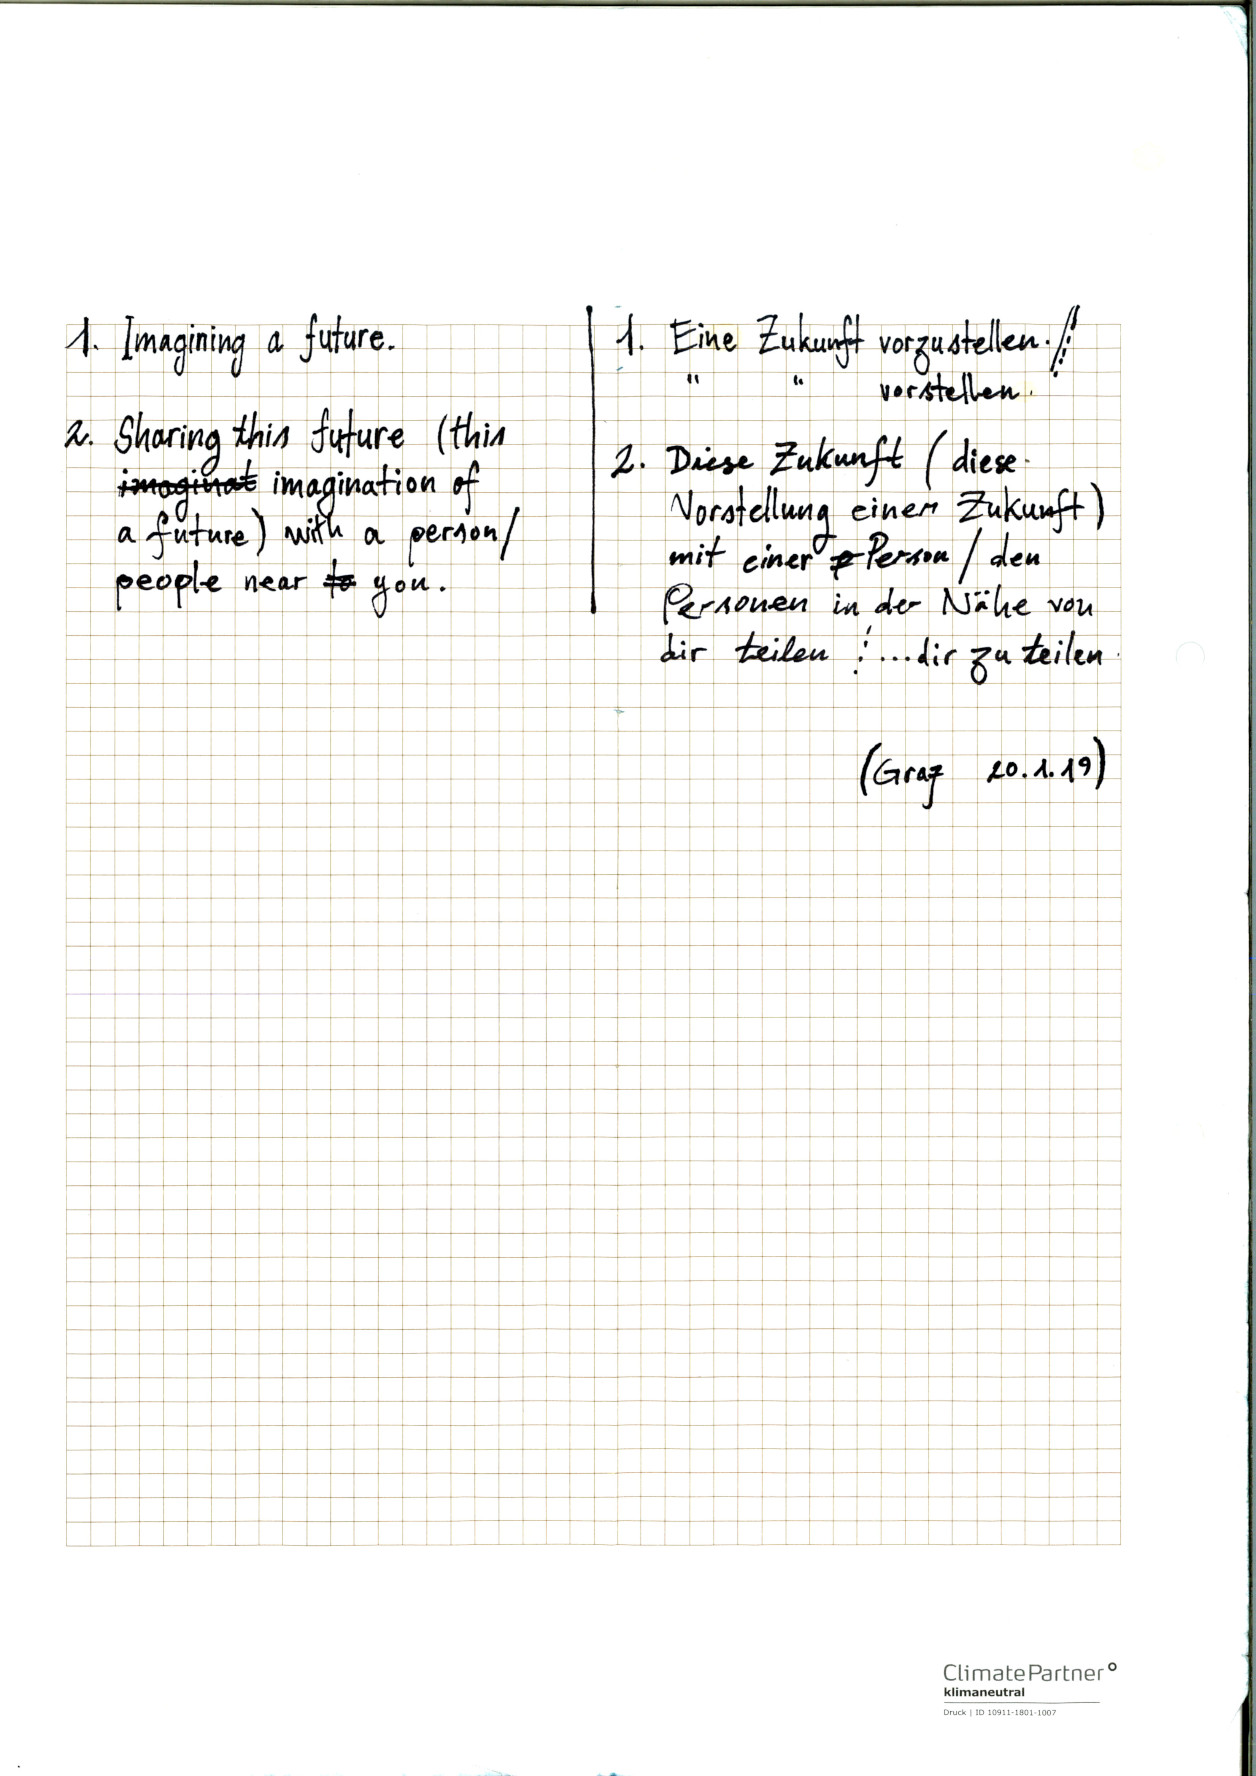 1. Imagining a future.
2. Sharing this future (this
imaginat imagination of
a future) with a person/
people near to you.
1. Eine Zukunft vorzustellen. //
" " vorstellen.
2. Diese Zukunft (diese
Vorstellung einer Zukunft)
mit einer P Person / den
Personen in der Nähe von
dir teilen / ...dir zu teilen.
(Graz 20.1.19)
ClimatePartner°
klimaneutral
Druck | ID 10911-1801-1007